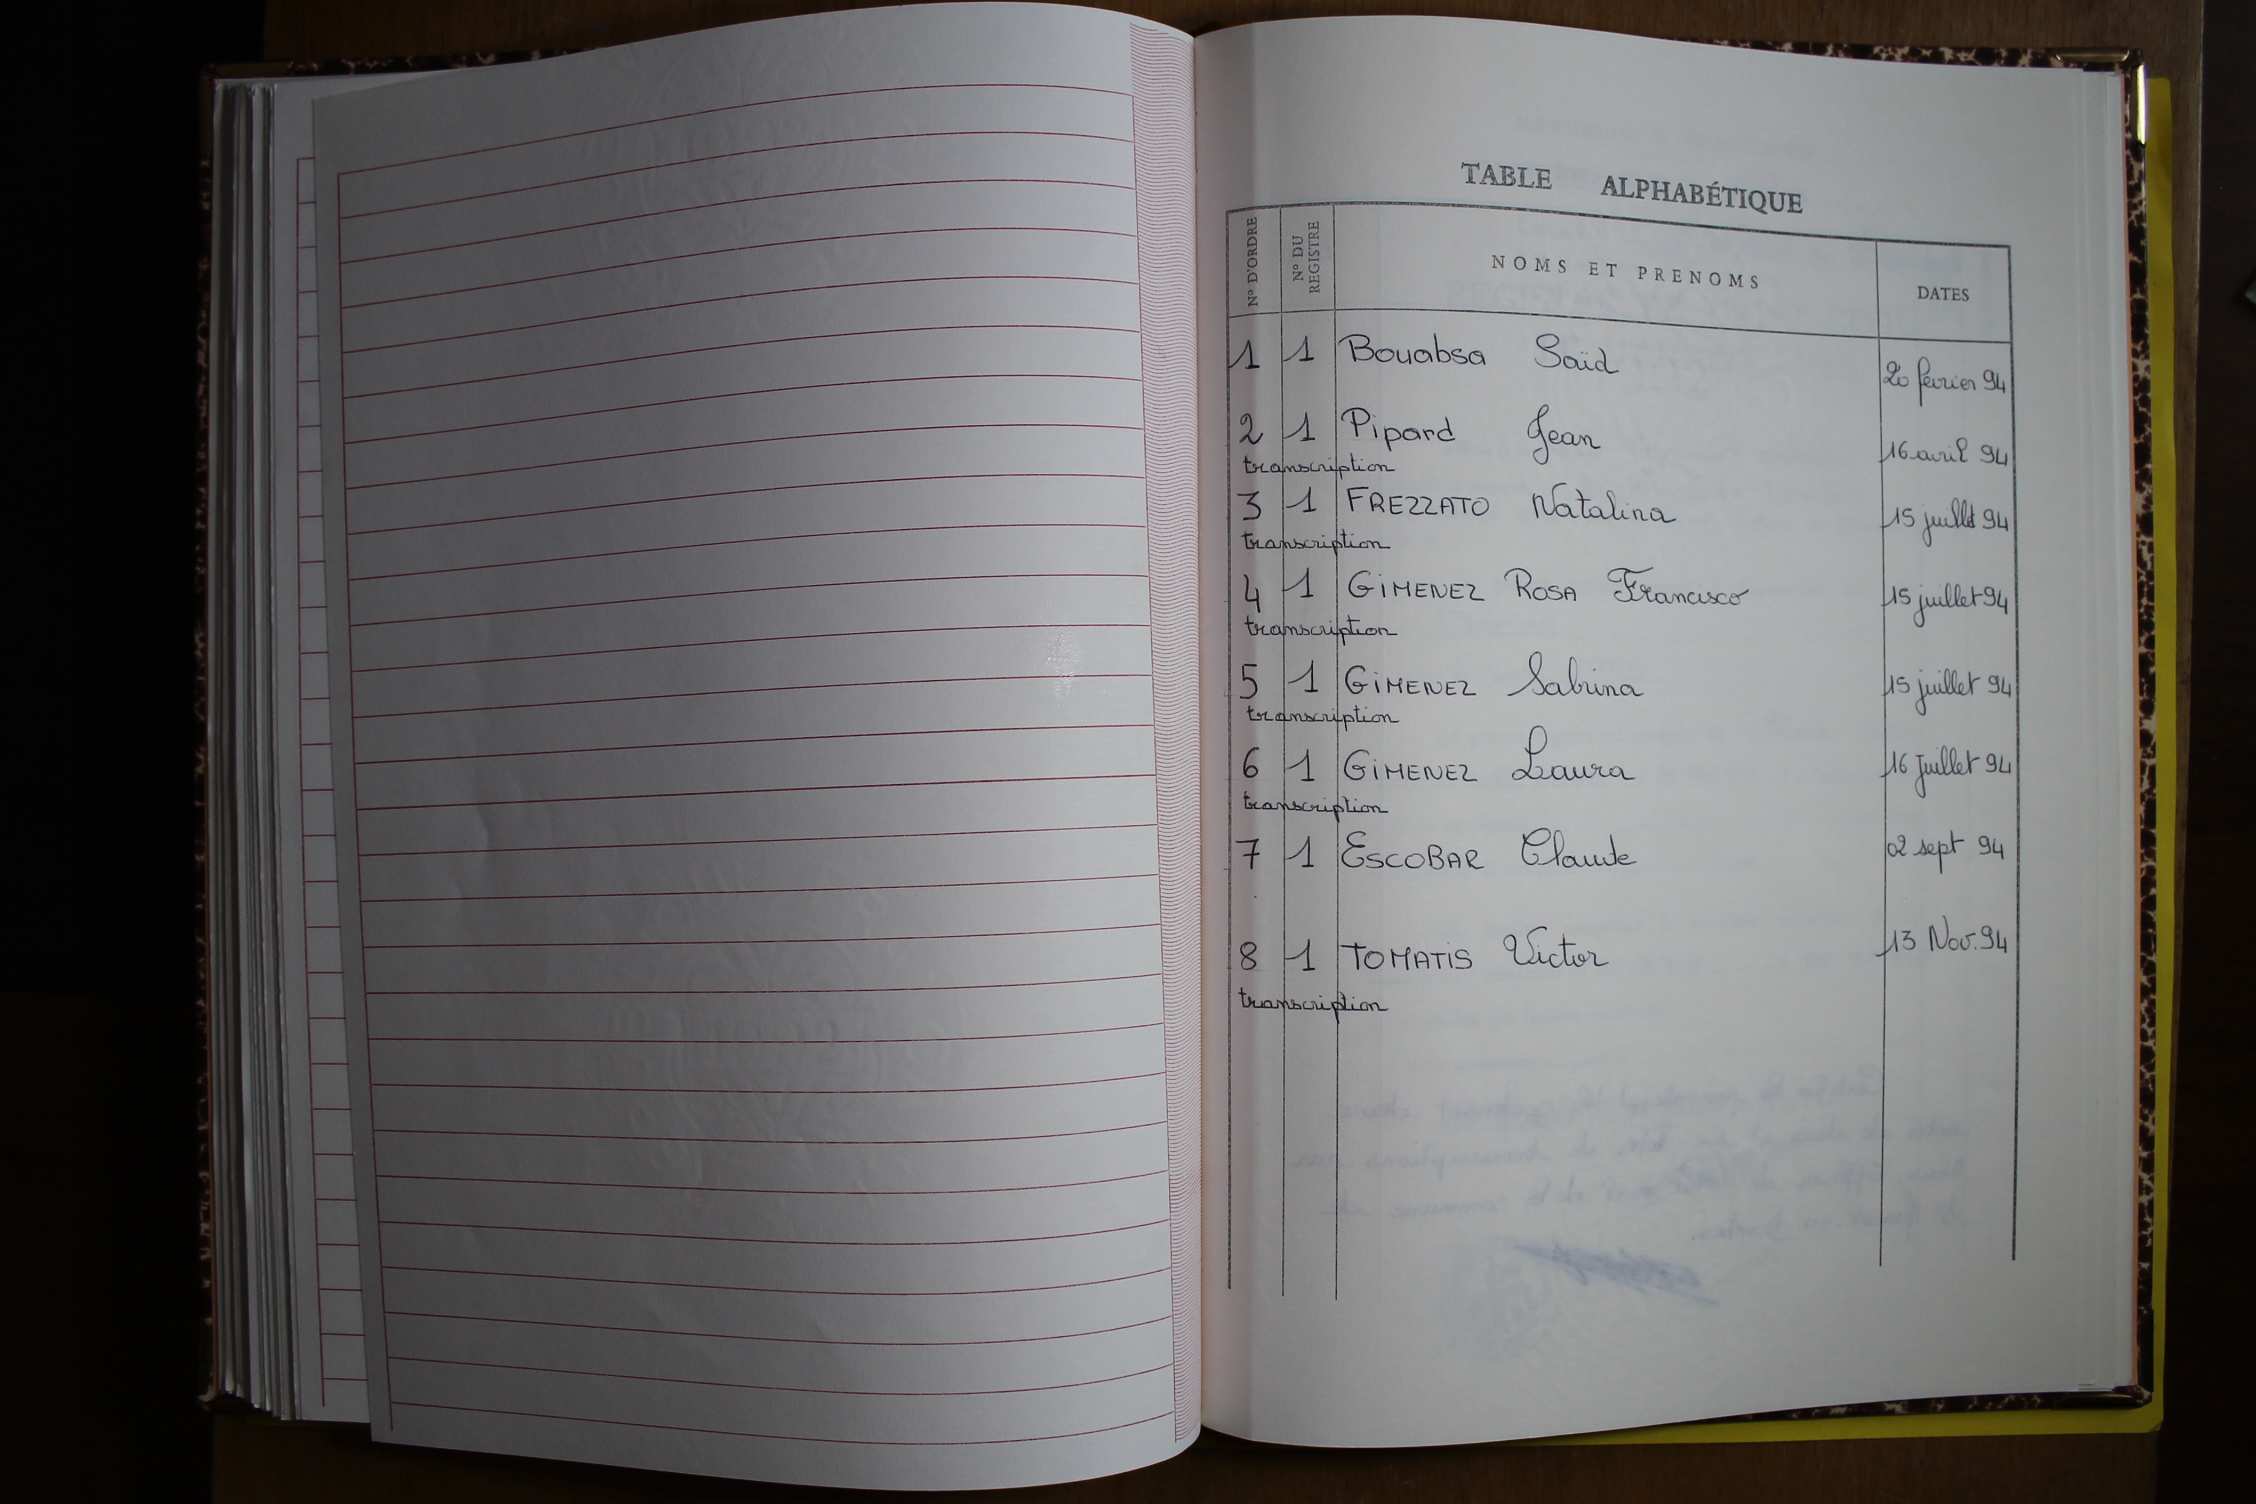 TABLE ALPHABÉTIQUE
N° D'ORDRE N° DU REGISTRE NOMS ET PRENOMS DATES
1 1 Bouabsa Saïd 20 février 94
2 1 Pipard Jean 16 avril 94
transcription
3 1 FREZZATO Natalina 15 juillet 94
transcription
4 1 GIMENEZ ROSA Francisco 15 juillet 94
transcription
5 1 GIMENEZ Sabrina 15 juillet 94
transcription
6 1 GIMENEZ Laura 16 Juillet 94
transcription
7 1 ESCOBAR Claude 02 sept 94
8 1 TOMATIS Victor 13 Nov. 94
transcription